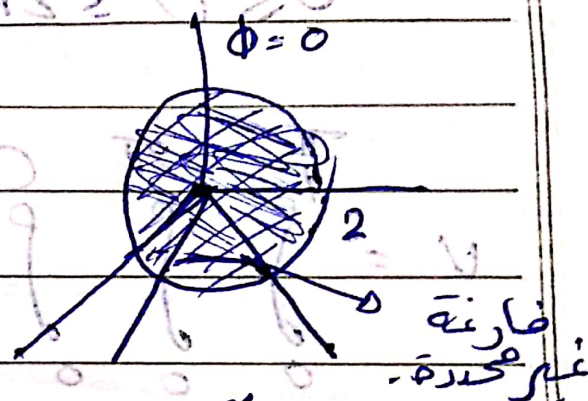 ϕ = 0
2
فارغة
غير محددة.